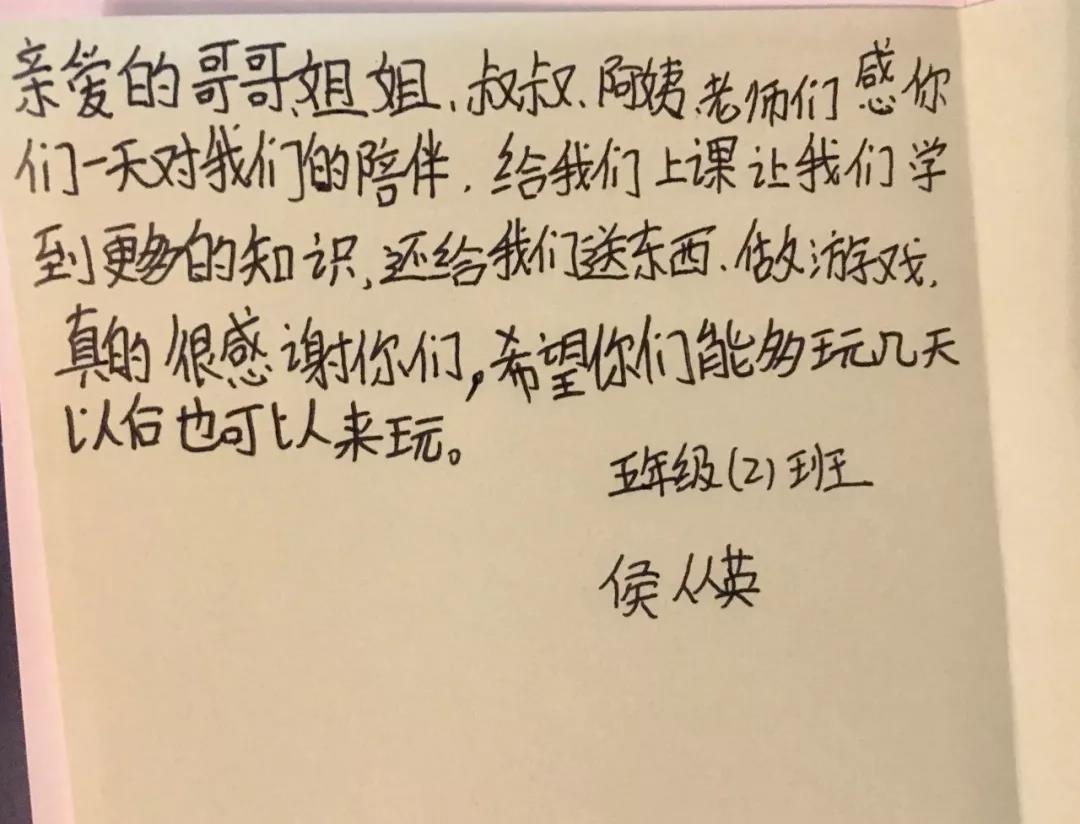 亲爱的哥哥、姐姐、叔叔、阿姨、老师们感你
们一天对我们的陪伴、给我们上课让我们学
到更多的知识,还给我们送东西、做游戏,
真的很感谢你们,希望你们能多玩几天
以后也可以来玩。
五年级(2)班
侯从英